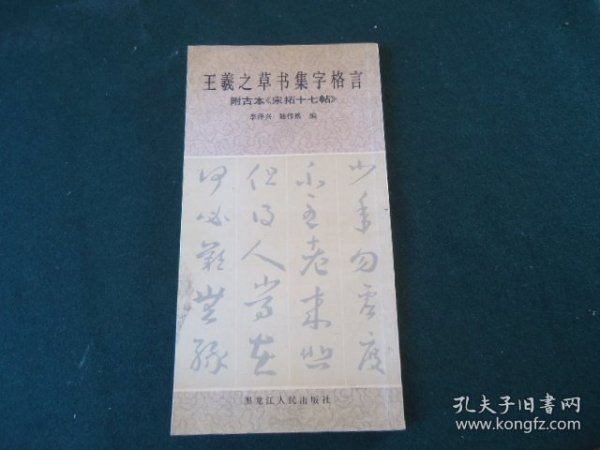 王羲之草书集字格言
附古本《宋拓十七帖》
编
少年勿虚度
老来
但得人常在
何必无缘
黑龙江人民出版社
孔夫子旧书网
www.kongfz.com